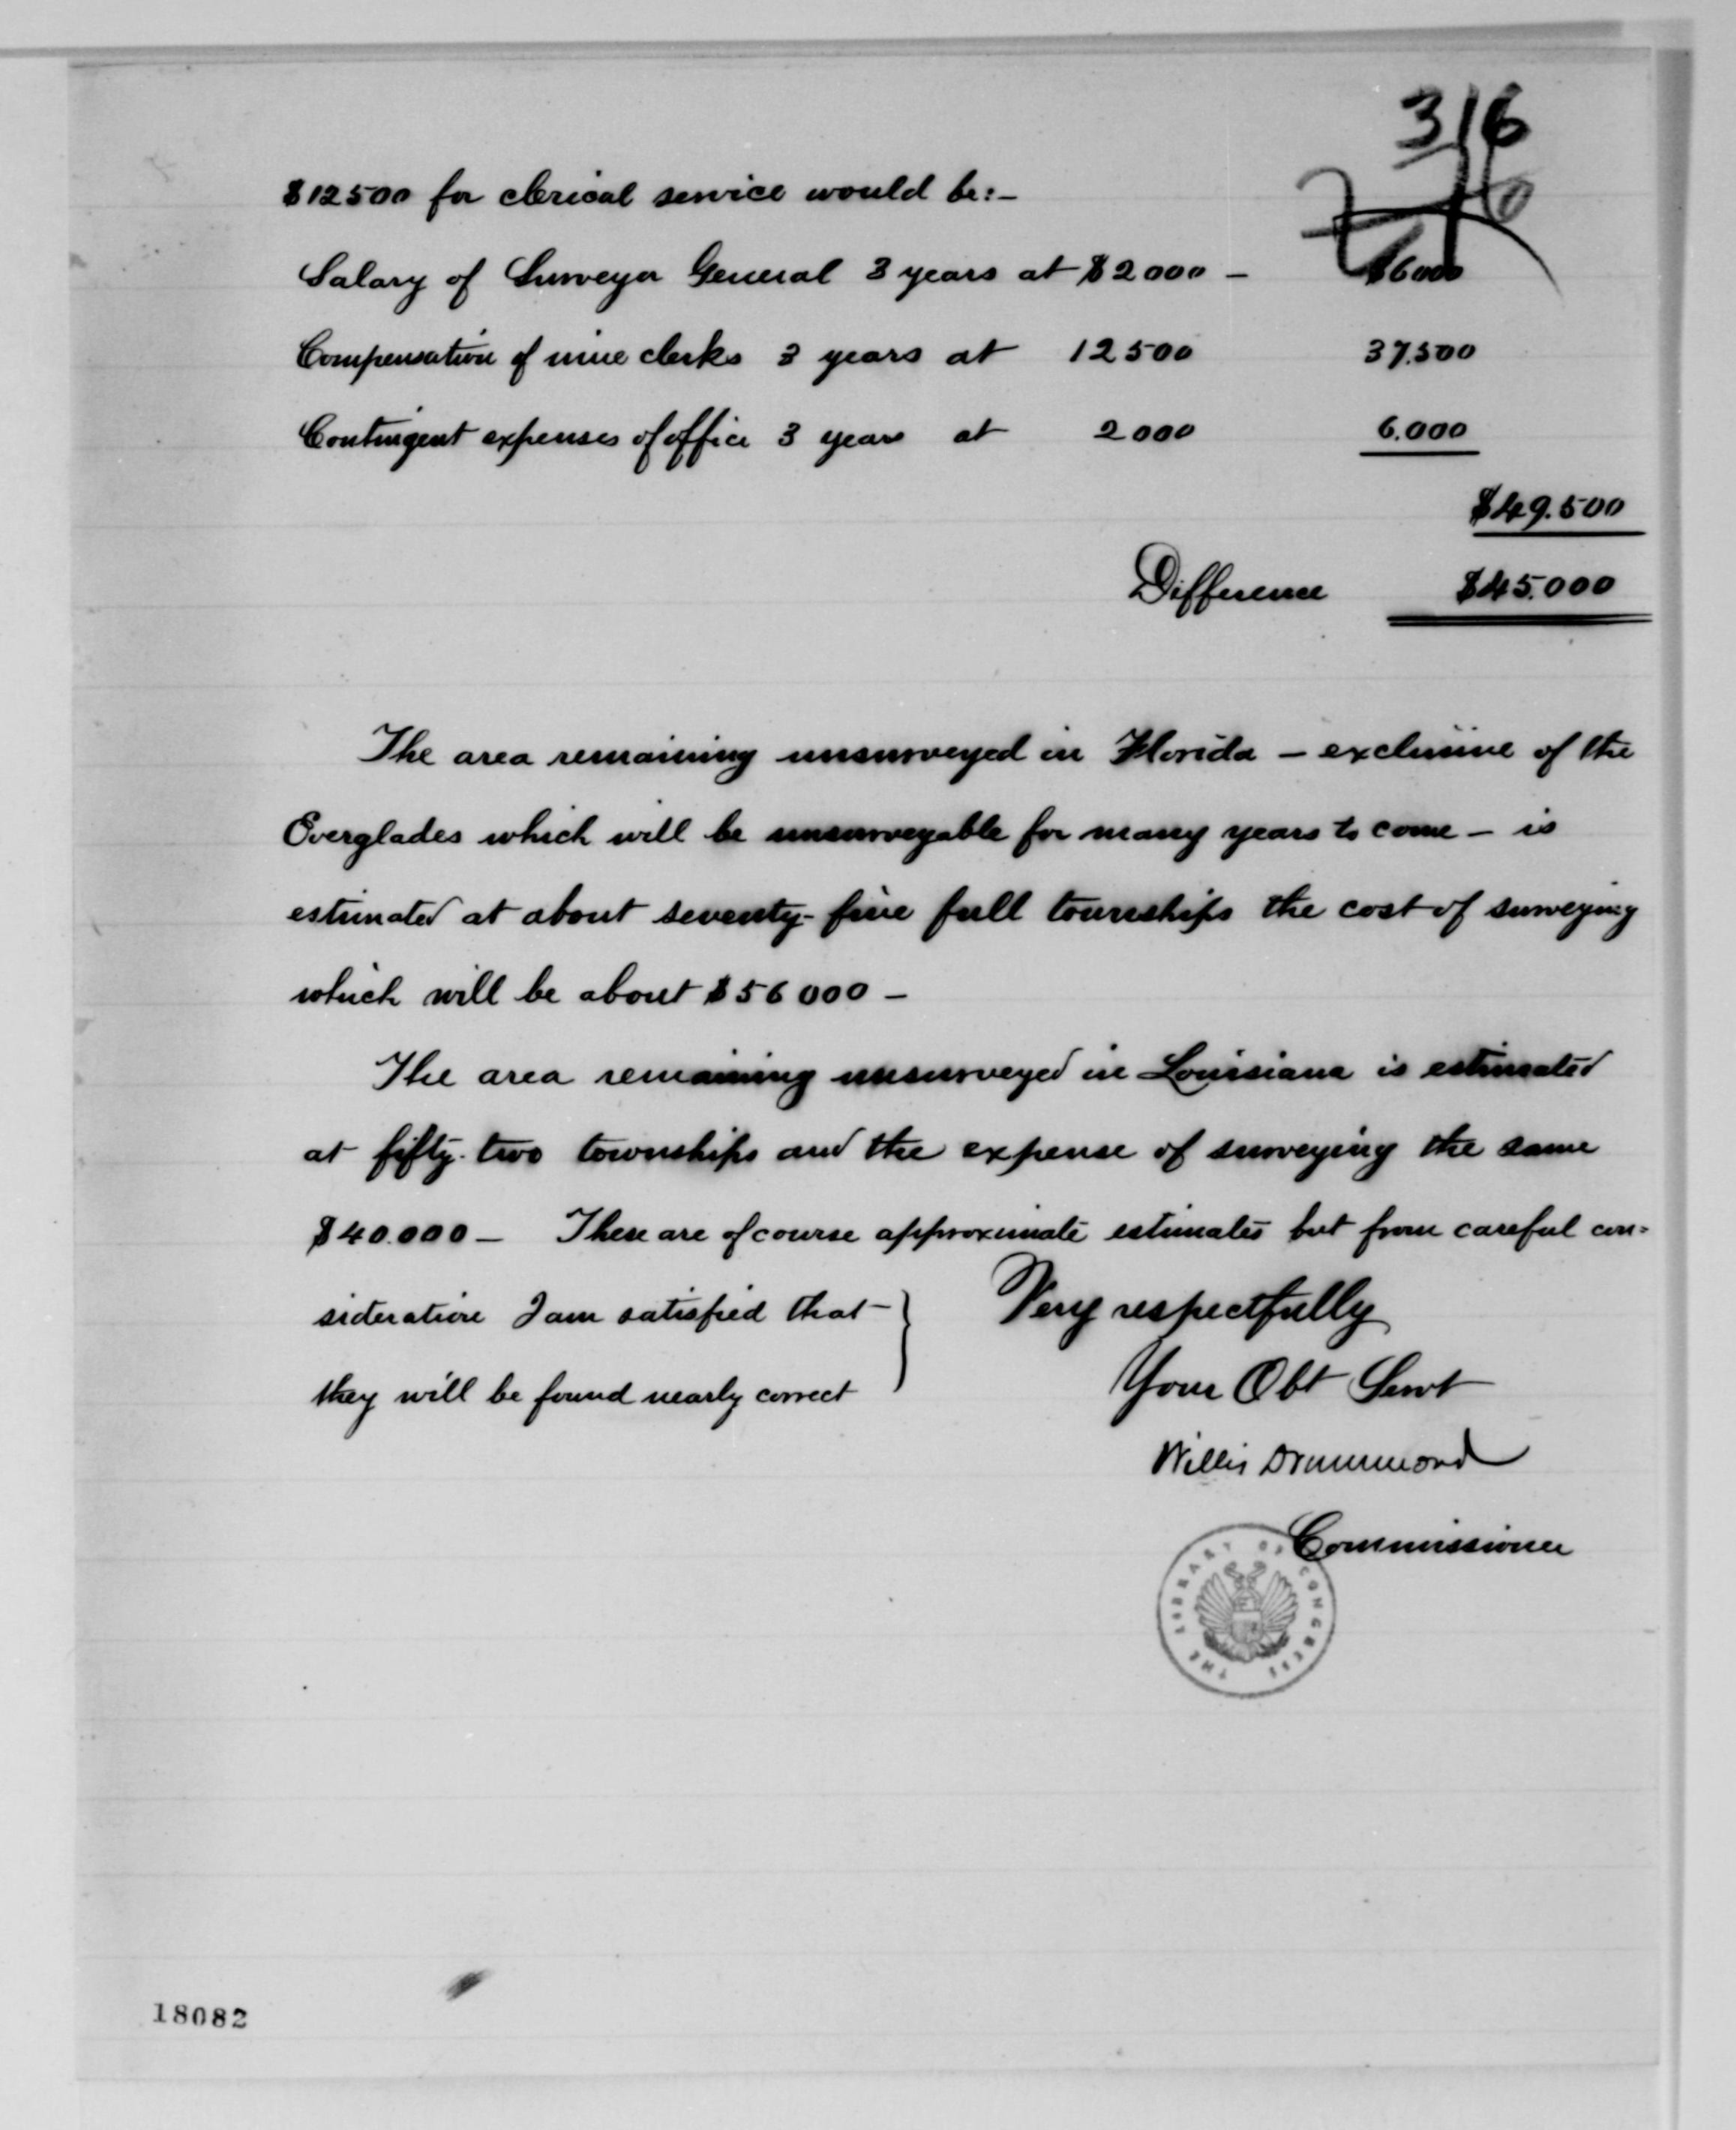 316
$12500 for clerical service would be:-
Salary of Surveyor General 3 years at $2000 - $6000
Compensation of nine clerks 3 years at 12500 37.500
Contingent expenses of office 3 years at 2000 6.000
$49.500
Difference $45.000
The area remaining unsurveyed in Florida - exclusive of the
Everglades which will be unsurveyable for many years to come - is
estimated at about seventy-five full townships the cost of surveying
which will be about $56000 -
The area remaining unsurveyed in Louisiana is estimated
at fifty-two townships and the expense of surveying the same
$40.000 - These are of course approximate estimates but from careful con=
sideration I am satisfied that
they will be found nearly correct
Very respectfully
Your Obt Servt
Willis Drummond
Commissioner
THE LIBRARY OF CONGRESS
18082